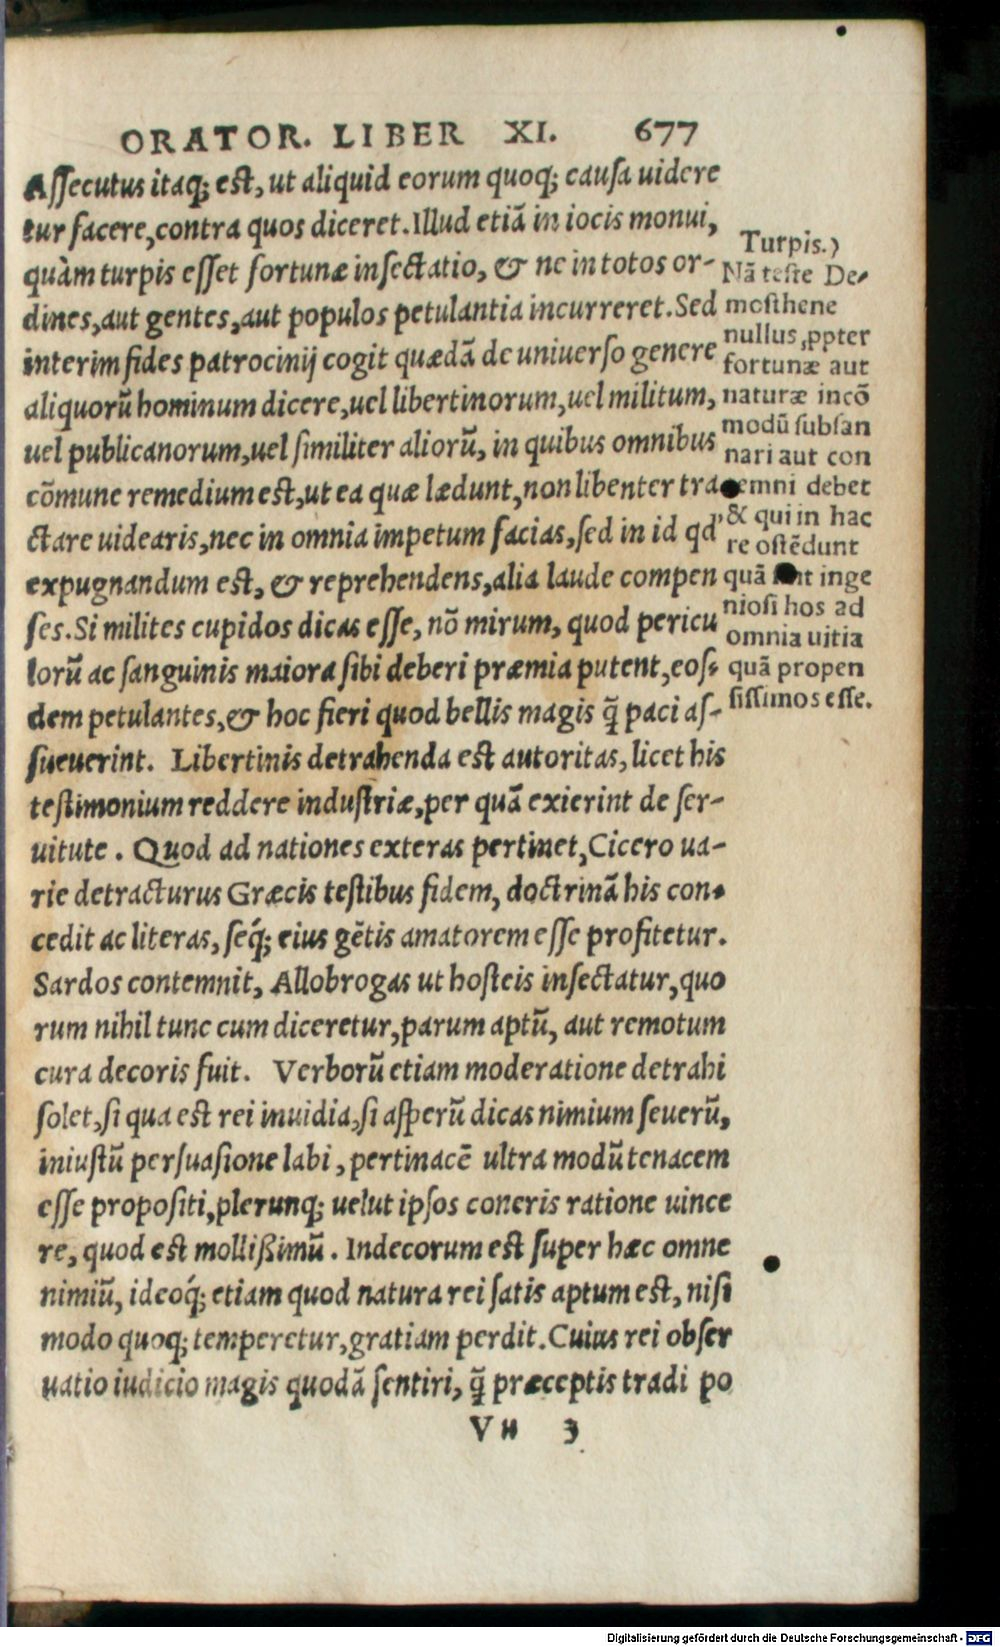 ORATOR. LIBER XI. 677
Assecutus itaq; est, ut aliquid eorum quoq; causa uidere
tur facere, contra quos diceret. Illud etiã in iocis monui,
quàm turpis esset fortunæ insectatio, & ne in totos or-
dines, aut gentes, aut populos petulantia incurreret. Sed
interim fides patrocinij cogit quædã de uniuerso genere
aliquorũ hominum dicere, uel libertinorum, uel militum,
uel publicanorum, uel similiter aliorũ, in quibus omnibus
cõmune remedium est, ut ea quæ lædunt, non libenter tra
ctare uidearis, nec in omnia impetum facias, sed in id qd'
expugnandum est, & reprehendens, alia laude compen
ses. Si milites cupidos dicas esse, nõ mirum, quod pericu
lorũ ac sanguinis maiora sibi deberi præmia putent, eos-
dem petulantes, & hoc fieri quod bellis magis q̃ paci as-
sueuerint. Libertinis detrahenda est autoritas, licet his
testimonium reddere industriæ, per quã exierint de ser-
uitute. Quod ad nationes exteras pertinet, Cicero ua-
rie detracturus Græcis testibus fidem, doctrinã his con-
cedit ac literas, seq́; eius gẽtis amatorem esse profitetur.
Sardos contemnit, Allobrogas ut hosteis insectatur, quo
rum nihil tunc cum diceretur, parum aptũ, aut remotum
cura decoris fuit. Verborũ etiam moderatione detrahi
solet, si qua est rei inuidia, si asperũ dicas nimium seuerũ,
iniustũ persuasione labi, pertinacẽ ultra modũ tenacem
esse propositi, plerunq; uelut ipsos coneris ratione uince
re, quod est mollißimũ. Indecorum est super hæc omne
nimiũ, ideoq́; etiam quod natura rei satis aptum est, nisi
modo quoq; temperetur, gratiam perdit. Cuius rei obser
uatio iudicio magis quodã sentiri, q̃ præceptis tradi po
Turpis.)
Nã teste De-
mosthene
nullus ,ppter
fortunæ aut
naturæ incõ
modũ subsan
nari aut con
emni debet
& qui in hac
re ostẽdunt
quã nt inge
niosi hos ad
omnia uitia
quã propen
sissimos esse.
VH 3
Digitalisierung gefördert durch die Deutsche Forschungsgemeinschaft - DFG